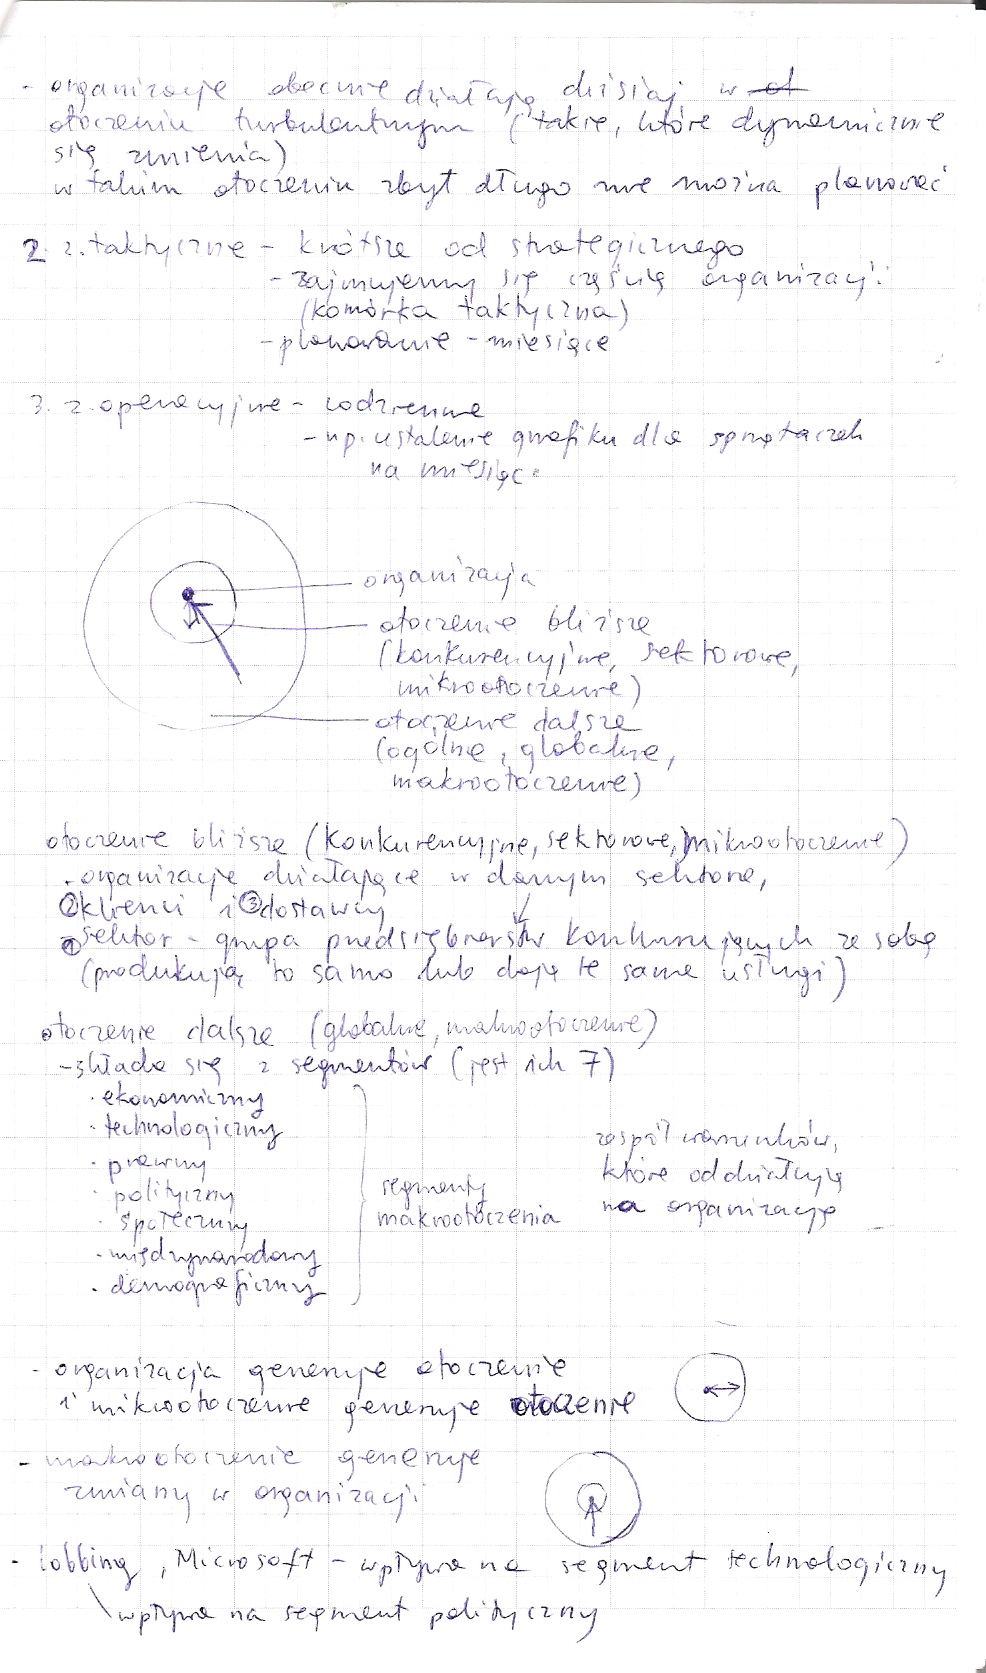 - organizacje obecnie działają dzisiaj w ot
otoczeniu turbulentnym (takie, które dynamicznie
się zmienia)
w takim otoczeniu zbyt długo nie można planować
2. z. taktyczne - krótsze od strategicznego
- zajmujemy się częścią organizacji
(komórka taktyczna)
- planowanie - miesiące
3. z. operacyjne - codzienne
- np. ustalenie grafiku dla sprzątaczek
na miesiąc
organizacja
otoczenie bliższe
(konkurencyjne, sektorowe,
mikrootoczenie)
otoczenie dalsze
(ogólne, globalne,
makrootoczenie)
otoczenie bliższe (konkurencyjne, sektorowe, mikrootoczenie)
- organizacje działające w danym sektorze,
② klienci i ③ dostawcy
① sektor - grupa przedsiębiorstw konkurujących ze sobą
(produkują to samo lub dają te same usługi)
otoczenie dalsze (globalne, makrootoczenie)
- składa się z segmentów (jest ich 7)
· ekonomiczny
· technologiczny
· prawny
· polityczny
· społeczny
· międzynarodowy
· demograficzny
segmenty
makrootoczenia
zespół warunków,
które oddziałują
na organizację
- organizacja generuje otoczenie
i mikrootoczenie generuje otoczenie
- makrootoczenie generuje
zmiany w organizacji
- lobbing, Microsoft - wpływa na segment technologiczny
\ wpływa na segment polityczny